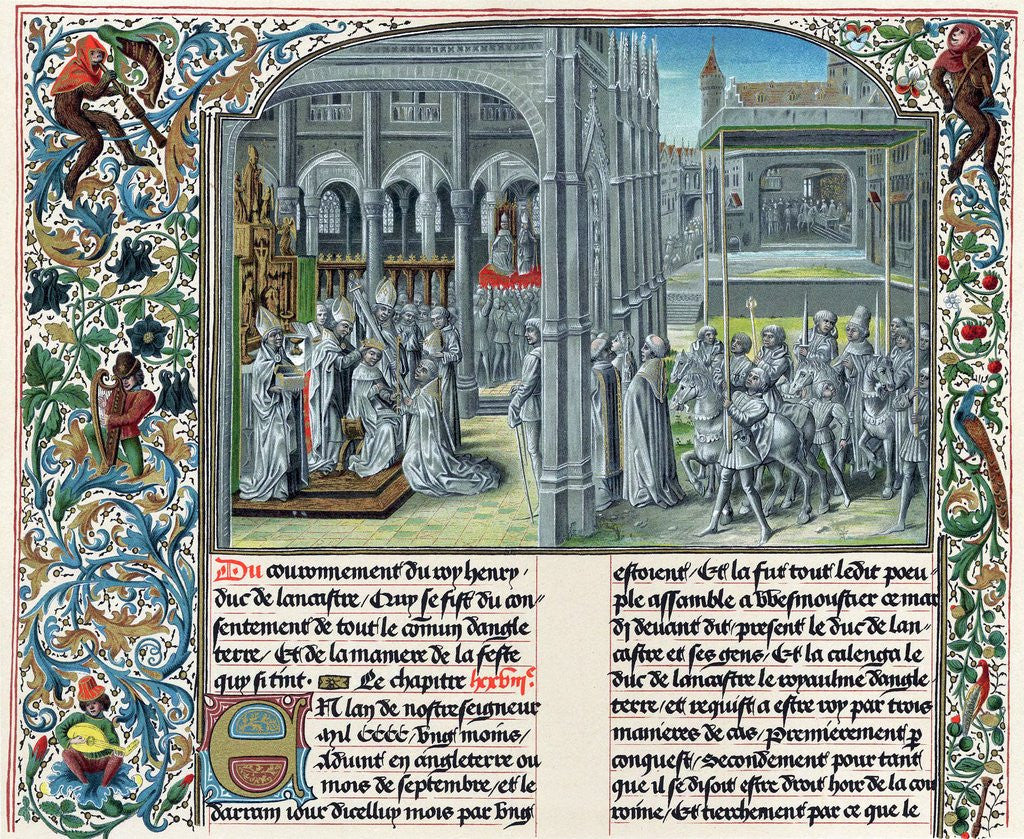 Du couronnement du roy henry,
duc de lancastre / Quy se fist du con-
sentement de tout le comun dangle
terre / Et de la maniere de la feste
quy si tint. Le chapitre lxxviii.c
EN lan de nostre seigneur
mil CCCC / vng moins /
Aduint en angleterre ou
mois de septembre / et le
darrain iour dicelluy mois par vng
estoient / Et la fut tout ledit poeu-
ple assamble a Wesmoustier ce mar
di deuant dit / present le duc de lan-
castre et ses gens / Et la calenga le
duc de lancastre le royaulme dangle
terre / et requist a estre roy par trois
manieres de cas / Premierement p
conquest / Secondement pour tant
que il se disoit estre droit hoir de la cou
ronne / Et tierchement par ce que le